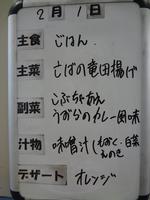 2月1日
主食 ごはん
主菜 さばの竜田揚げ
副菜 こぶちあえ
うずらのカレー風味
汁物 味噌汁(もずく・白菜
えのき
デザート オレンジ